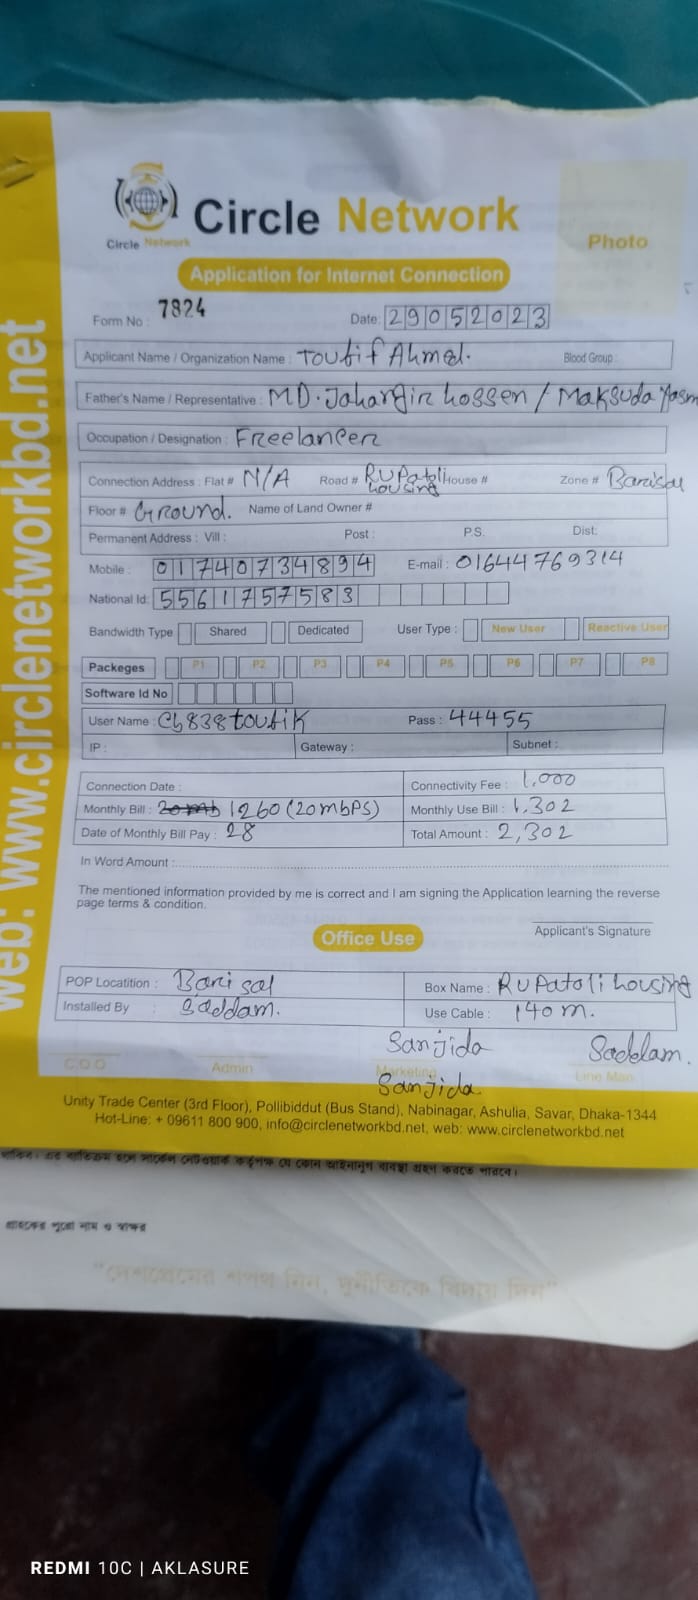 Circle Network
Circle Network
Photo
Application for Internet Connection
Form No : 7824 Date: 29052023
Applicant Name / Organization Name : Toufif Ahmed. Blood Group :
Father's Name / Representative : MD. Jahangir hossen / Maksuda Yasm
Occupation / Designation : Freelancer
Connection Address : Flat # N/A Road # RUPatoli housing House # Zone # Barisal
Floor # Ground. Name of Land Owner #
Permanent Address : Vill : Post : P.S. Dist:
Mobile : 01740734894 E-mail : 01644769314
National Id: 5561757583
Bandwidth Type Shared Dedicated User Type : New User Reactive User
Packeges P1 P2 P3 P4 P5 P6 P7 P8
Software Id No
User Name : Pass : 44455
IP : Gateway : Subnet :
Connection Date : Connectivity Fee : 1,000
Monthly Bill : 20 mb 1260 (20mbPS) Monthly Use Bill : 1,302
Date of Monthly Bill Pay : 28 Total Amount : 2,302
In Word Amount :
The mentioned information provided by me is correct and I am signing the Application learning the reverse
page terms & condition.
Applicant's Signature
Office Use
POP Locatition : Barisal Box Name : RUPatoli housing
Installed By : Saddam. Use Cable : 140 m.
Sanjida Saddam.
C.O.O Admin Marketing Line Man
Sanjida
Unity Trade Center (3rd Floor), Pollibiddut (Bus Stand), Nabinagar, Ashulia, Savar, Dhaka-1344
Hot-Line: + 09611 800 900, info@circlenetworkbd.net, web: www.circlenetworkbd.net
web: www.circlenetworkbd.net
থাকিব। এর ব্যতিক্রম হলে সার্কেল নেটওয়ার্ক কর্তৃপক্ষ যে কোন আইনানুগ ব্যবস্থা গ্রহণ করতে পারবে।
গ্রাহকের পুরো নাম ও স্বাক্ষর
"দেশপ্রেমের শপথ নিন, দূর্নীতিকে বিদায় দিন"
REDMI 10C | AKLASURE